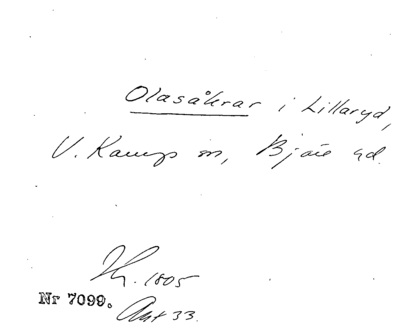 Olasåkrar i Lillaryd,
V. Karups sn, Bjäre hd.
Th. 1805
Nr 7099.
Akt 33.